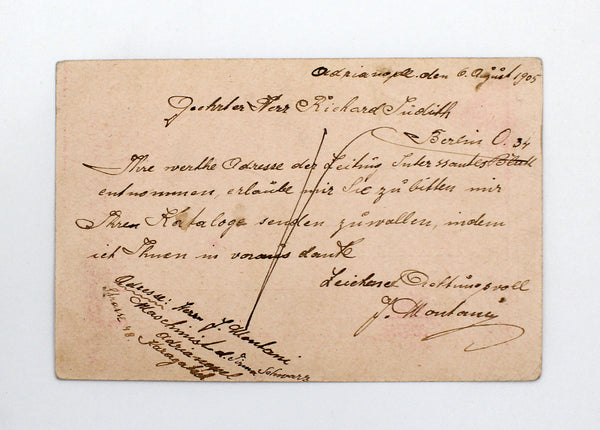 Adrianopel. den 6. Agùst 1905
Geehrter Herr Richard Judith
Berlin O. 34
Ihre werthe Adresse der Zeitùng Interssantes Blatt
entnommen, erlaùbe mir Sie zù bitten mir
Ihren Kataloge senden zùwollen, indem
ich Ihnen in voraùs dank
Zeichnet
J. Montani
Adresse: Herrn J. Montani
Maschinist d. Firma Schwarz
Adrianopel
Karagatsch
Strasse 48.